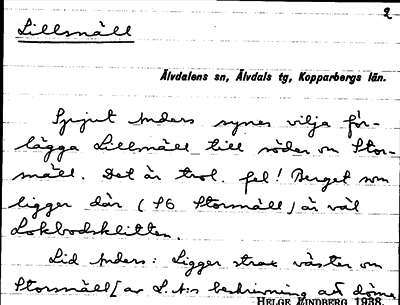 2
Lillsnäll
Älvdalens sn, Älvdals tg, Kopparbergs län.
Spjut Anders synes vilja för-
lägga Lillsnäll till söder om Stor-
snäll. Det är trol. fel! Berget som
ligger där (SO Storsnäll) är väl
Lokbodsklitten.
Lid Anders: Ligger strax väster om
Storsnäll [av L. A:s beskrivning att döma
HELGE LINDBERG 1938.